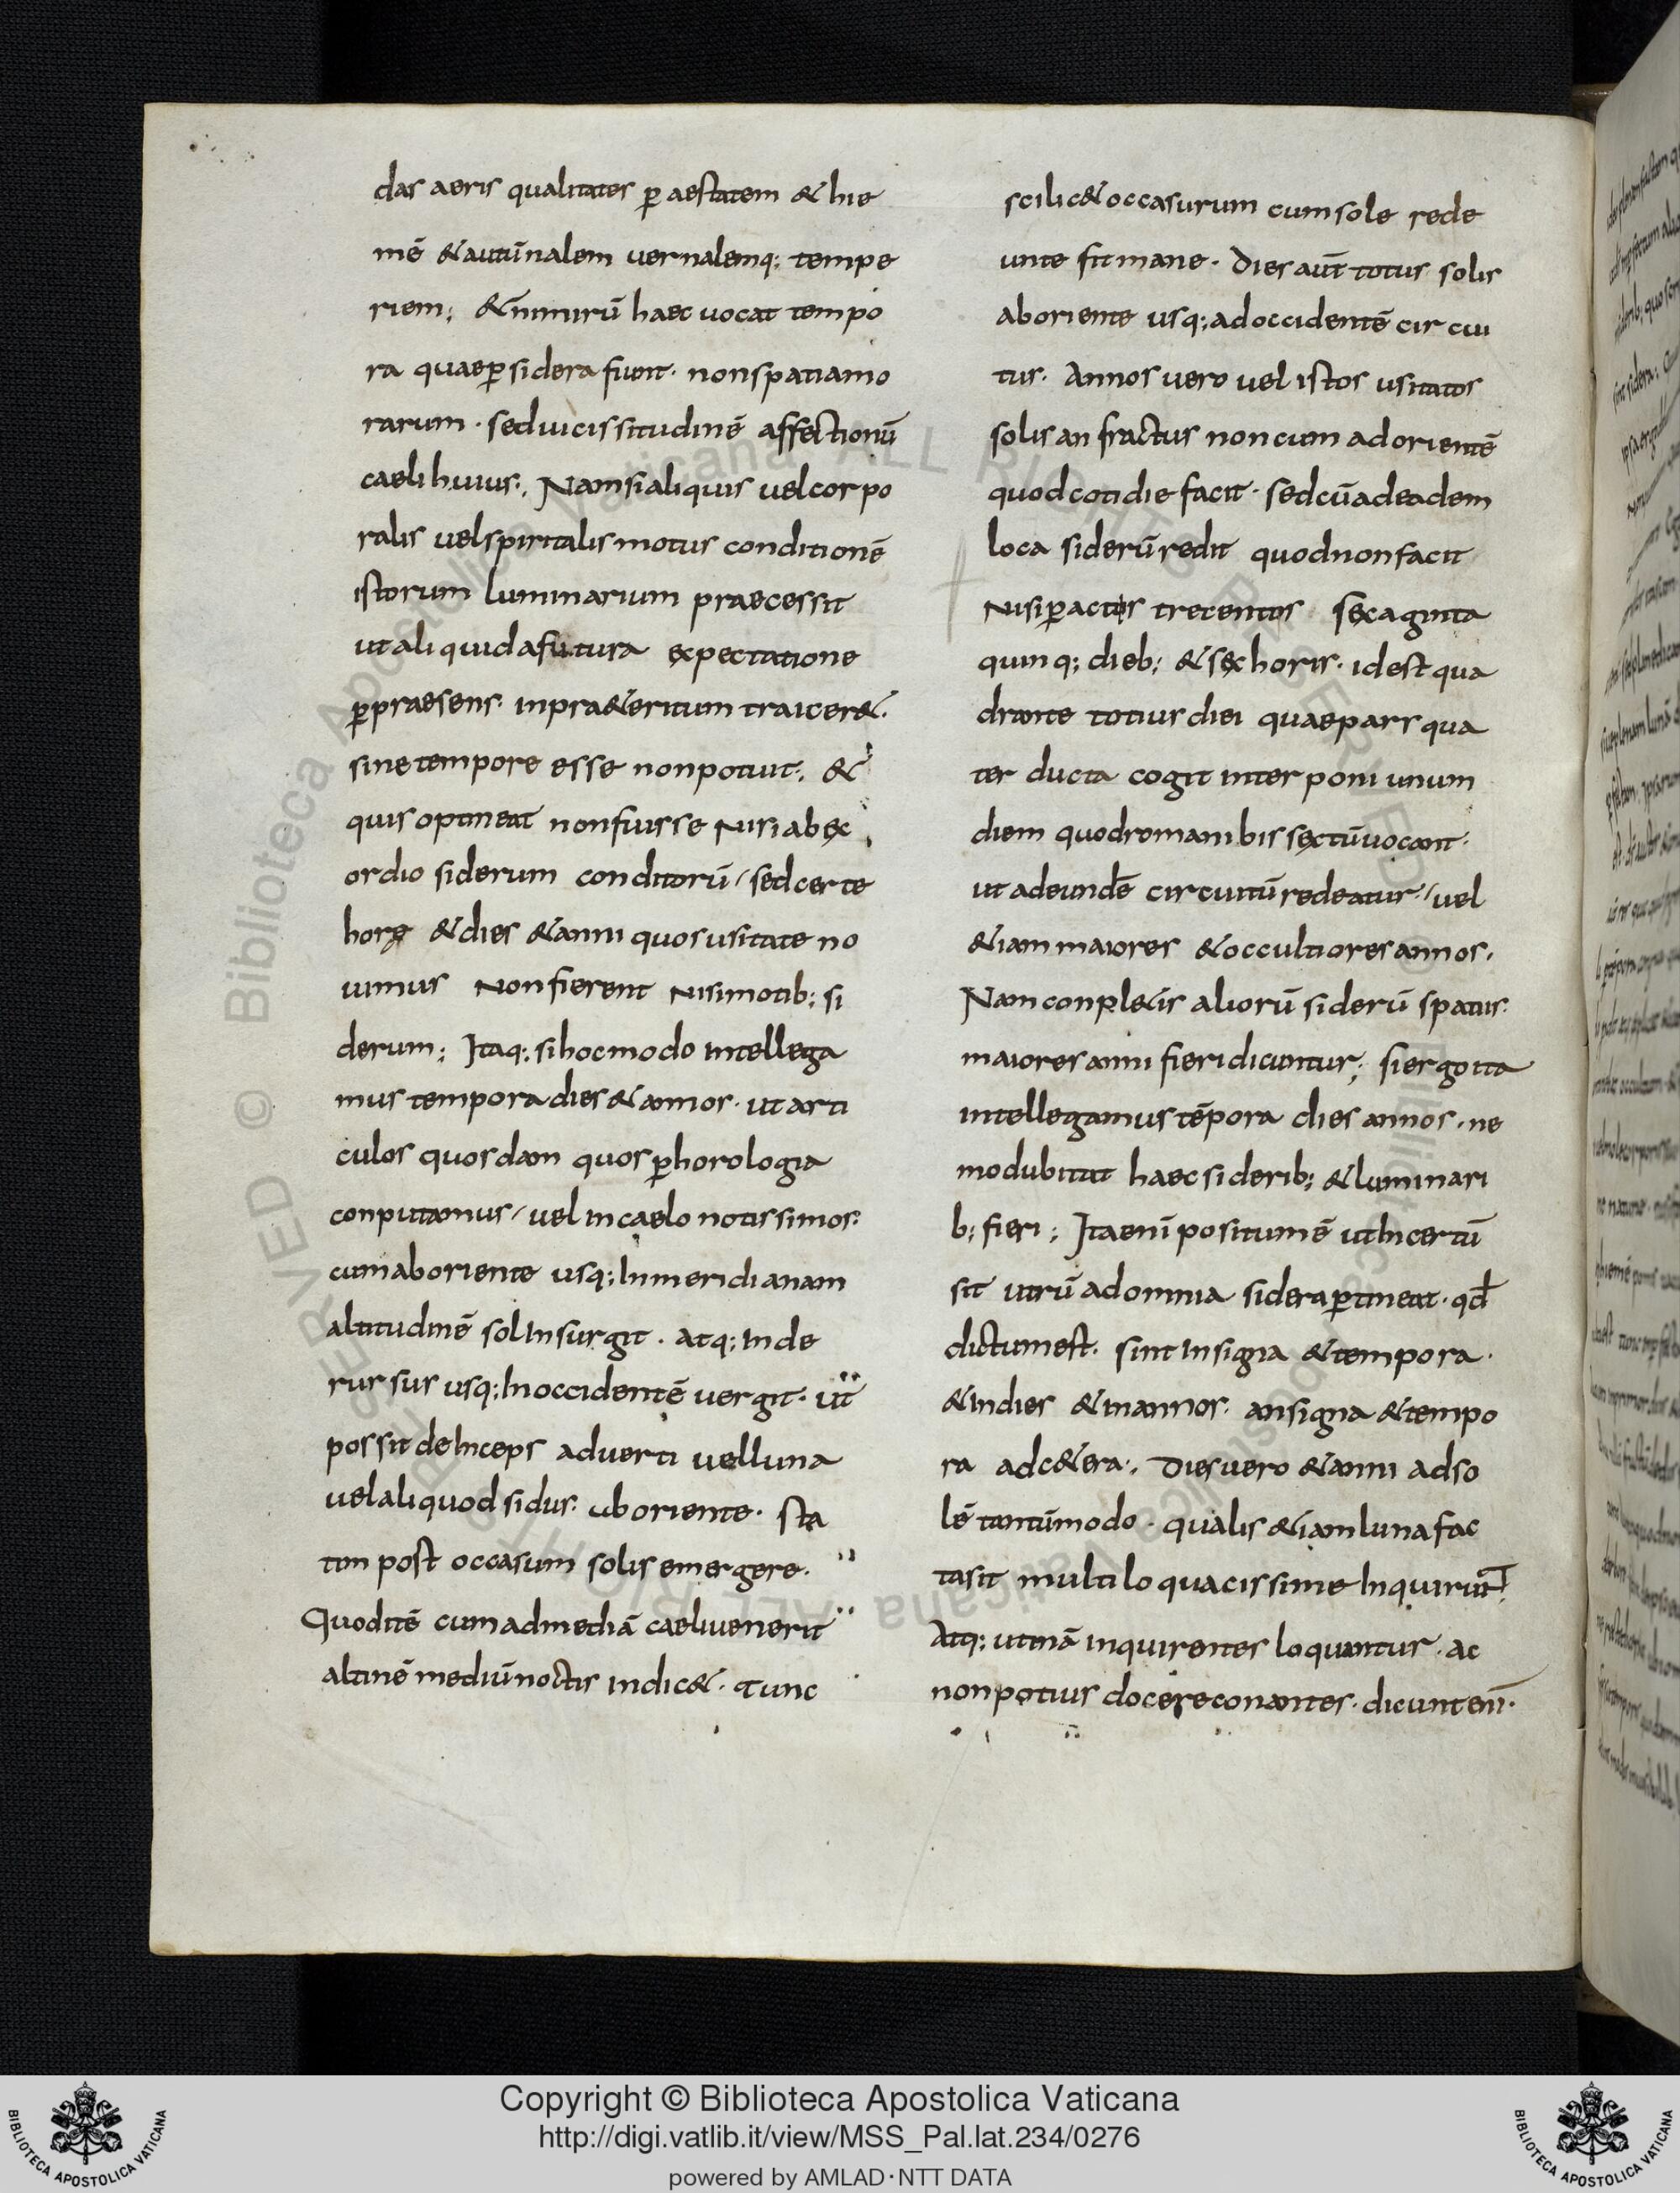 das aeris qualitates ꝑ aestatem & hie
mē & autūnalem uernalemq; tempe
riem; & nimirū haec uocat tempo
ra quaeꝑ sidera fiunt· non spatia mo
rarum · sed uicissitudinē affectionū
caeli huius; Nam si aliquis uel corpo
ralis uel spiritalis motus conditionē
istorum luminarium praecessit
ut aliquid a futura expectatione
ꝑ praesens· in pra&eritum traicer&·
sine tempore esse non potuit; &
quis optineat non fuisse nisi ab ex
ordio siderum conditorū/ sed certe
horę & dies & anni quos usitate no
uimus non fierent nisi motib; si
derum; Itaq; si hoc modo intellega
mus tempora dies & annos· ut arti
culos quosdam quos ꝑ horologia
conputamus/ uel in caelo notissimos·
cum ab oriente usq; in meridianam
altitudinē sol insurgit · atq; inde
rursus usq; in occidentē uergit· ut
possit deinceps aduerti uel luna
uel aliquod sidus· ab oriente· sta
tim post occasum solis emergere·
Quod itē cum ad mediā caeli uenerit
altinē mediū noctis indic&· tunc
scilic& occasurum cum sole rede
unte fit mane· Dies aūt totus solis
ab oriente usq; ad occidentē circui
tus· Annos uero uel istos usitatos
solis anfractus non cum ad orientē
quod cotidie facit· sed cū ad eadem
loca siderū redit quod non facit
nisi ꝑactis trecentos sexaginta
quinq; dieb; & sex horis· id est qua
drante totius diei quae pars qua
ter ducta cogit interponi unum
diem quod romani bissextū uocant·
ut ad eundē circuitū redeatur·/ uel
&iam maiores & occultiores annos·
Nam conpl&is aliorū siderū spatiis·
maiores anni fieri dicuntur; si ergo ita
intellegamus tēpora dies annos · ne
mo dubitat haec siderib; & luminari
b; fieri; Ita enī positum ē ut incertū
sit utrū ad omnia sidera ꝑtineat· qd̄
dictum est· sint in signa & tempora·
& in dies & in annos· an signa & tempo
ra ad c&era; Dies uero & anni ad so
lē tantūmodo · qualis &iam luna fac
ta sit multi loquacissime inquirunt;
Atq; utinā inquirentes loquantur · ac
non potius docere conantes· dicunt enī·
Copyright © Biblioteca Apostolica Vaticana
http://digi.vatlib.it/view/MSS_Pal.lat.234/0276
powered by AMLAD·NTT DATA
BIBLIOTECA APOSTOLICA VATICANA
BIBLIOTECA APOSTOLICA VATICANA